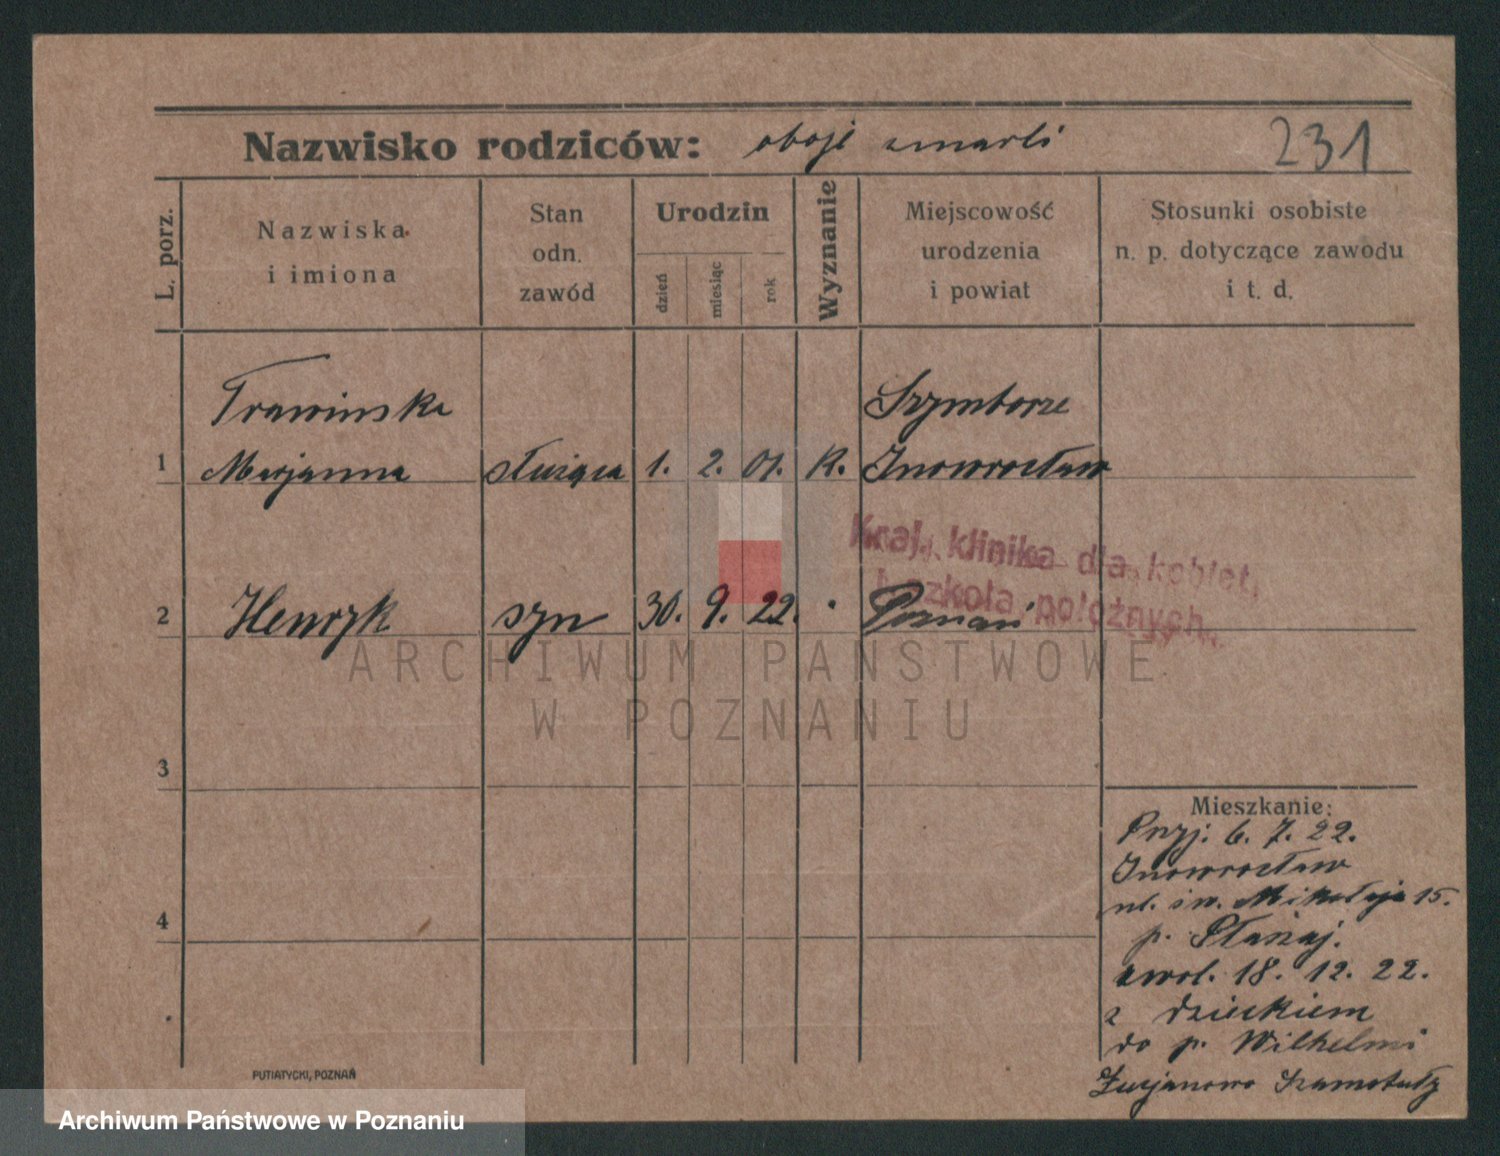 Nazwisko rodziców: oboje zmarli 231
L. porz.
Nazwiska i imiona
Stan odn. zawód
Urodzin
dzień
miesiąc
rok
Wyznanie
Miejscowość urodzenia i powiat
Stosunki osobiste n. p. dotyczące zawodu i t. d.
Trawinska Szymborze
1 Marjanna służąca 1. 2. 01. K. Inowrocław
Kraj. klinika dla kobiet,
i szkoła położnych.
2 Henryk syn 30. 9. 22. " Poznań
ARCHIWUM PAŃSTWOWE
W POZNANIU
3
Mieszkanie:
Przyj. 6. 7. 22.
Inowrocław
ul. św. Mikołaja 15.
4
p.
zwol. 18. 12. 22.
z dzieckiem
do p. Wilhelmi
Szamotuły
PUTIATYCKI, POZNAŃ
Archiwum Państwowe w Poznaniu